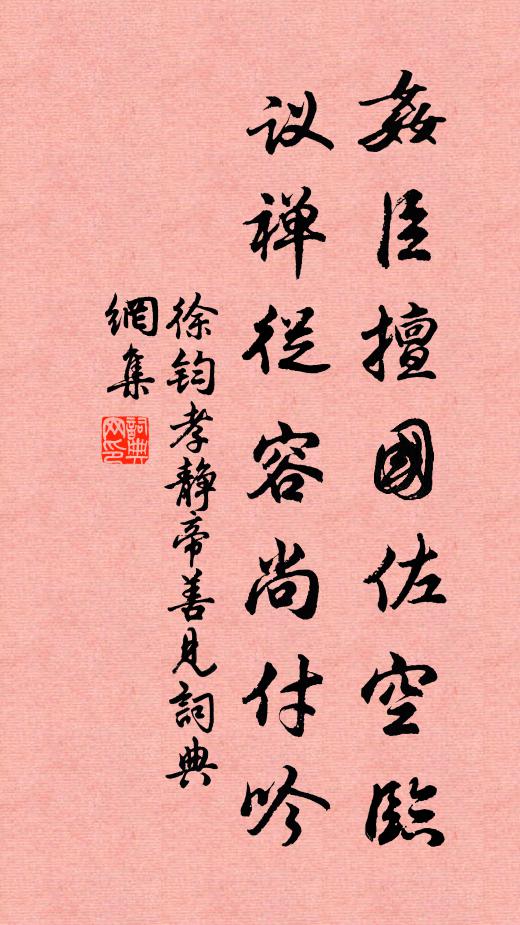 姦臣擅國佐空臨
议禅從容尚付吟
徐钧孝静帝善見詞典
網集
詞典
网印